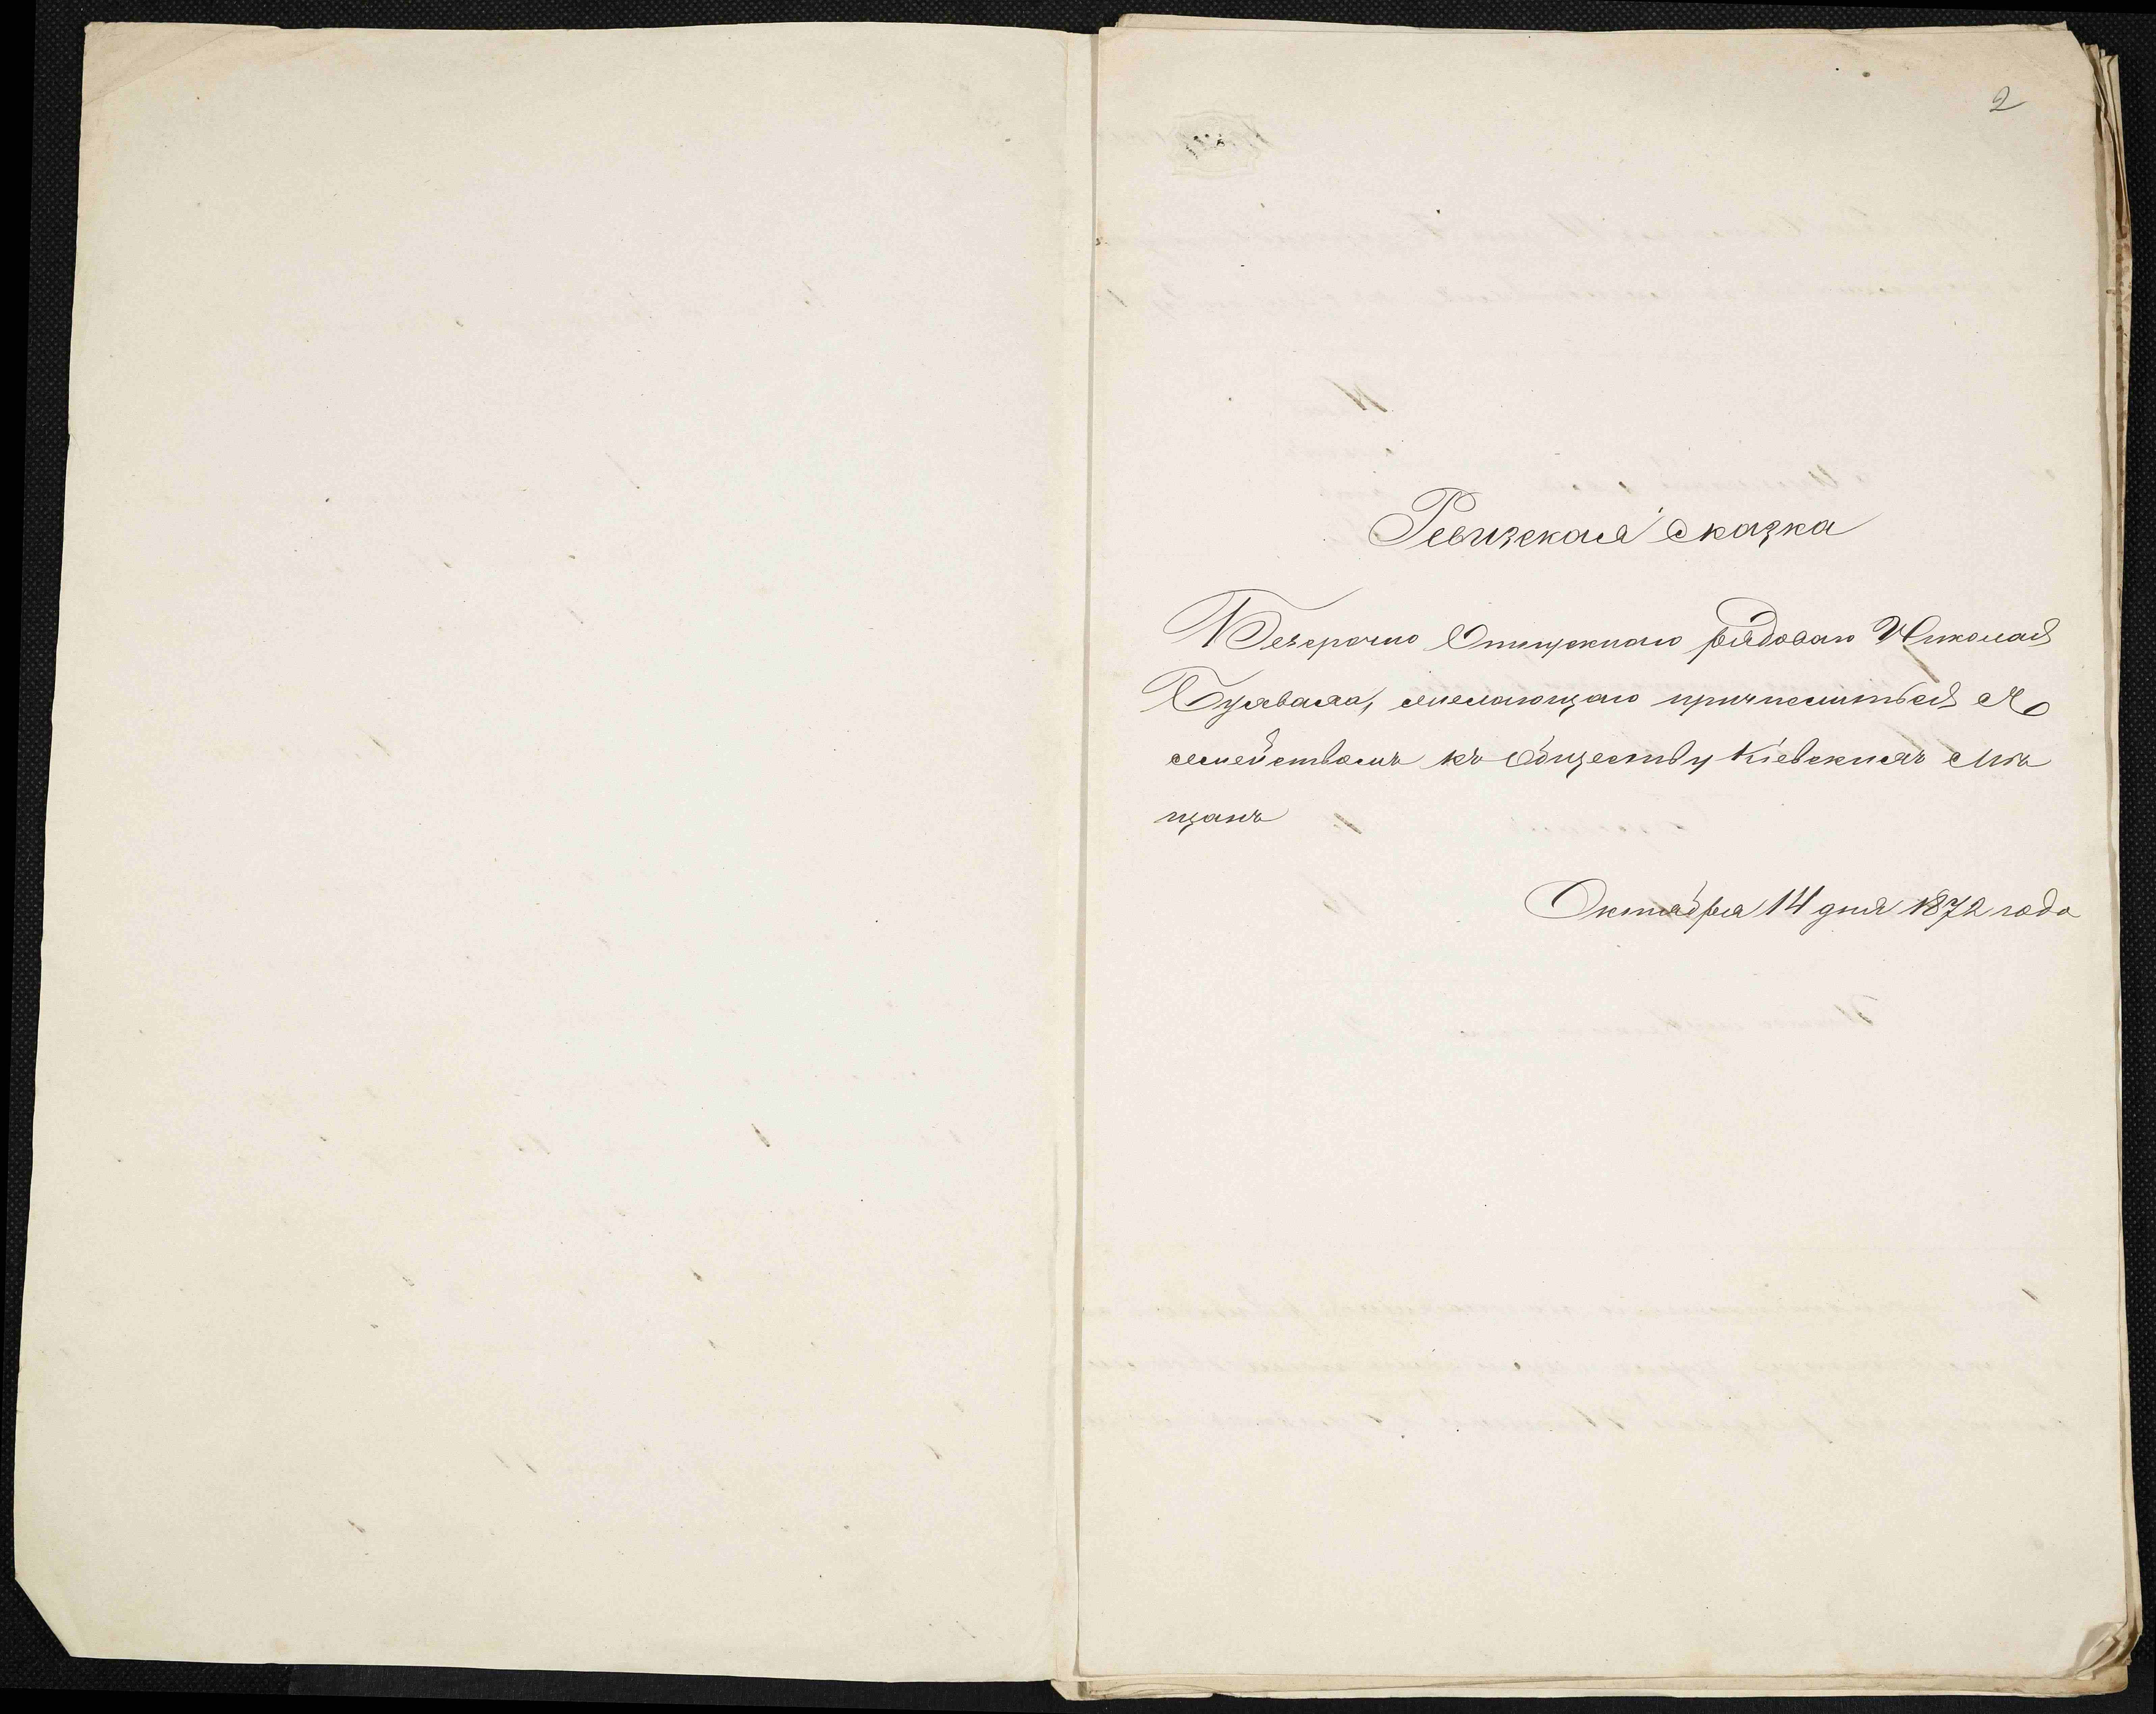 2
Ревизская сказка
Безсрочно Отпускнаго рядоваго Николая
желающаго причислиться съ
семействомъ къ обществу Кіевскихъ Мѣ
щанъ
Октября 14 дня 1872 года